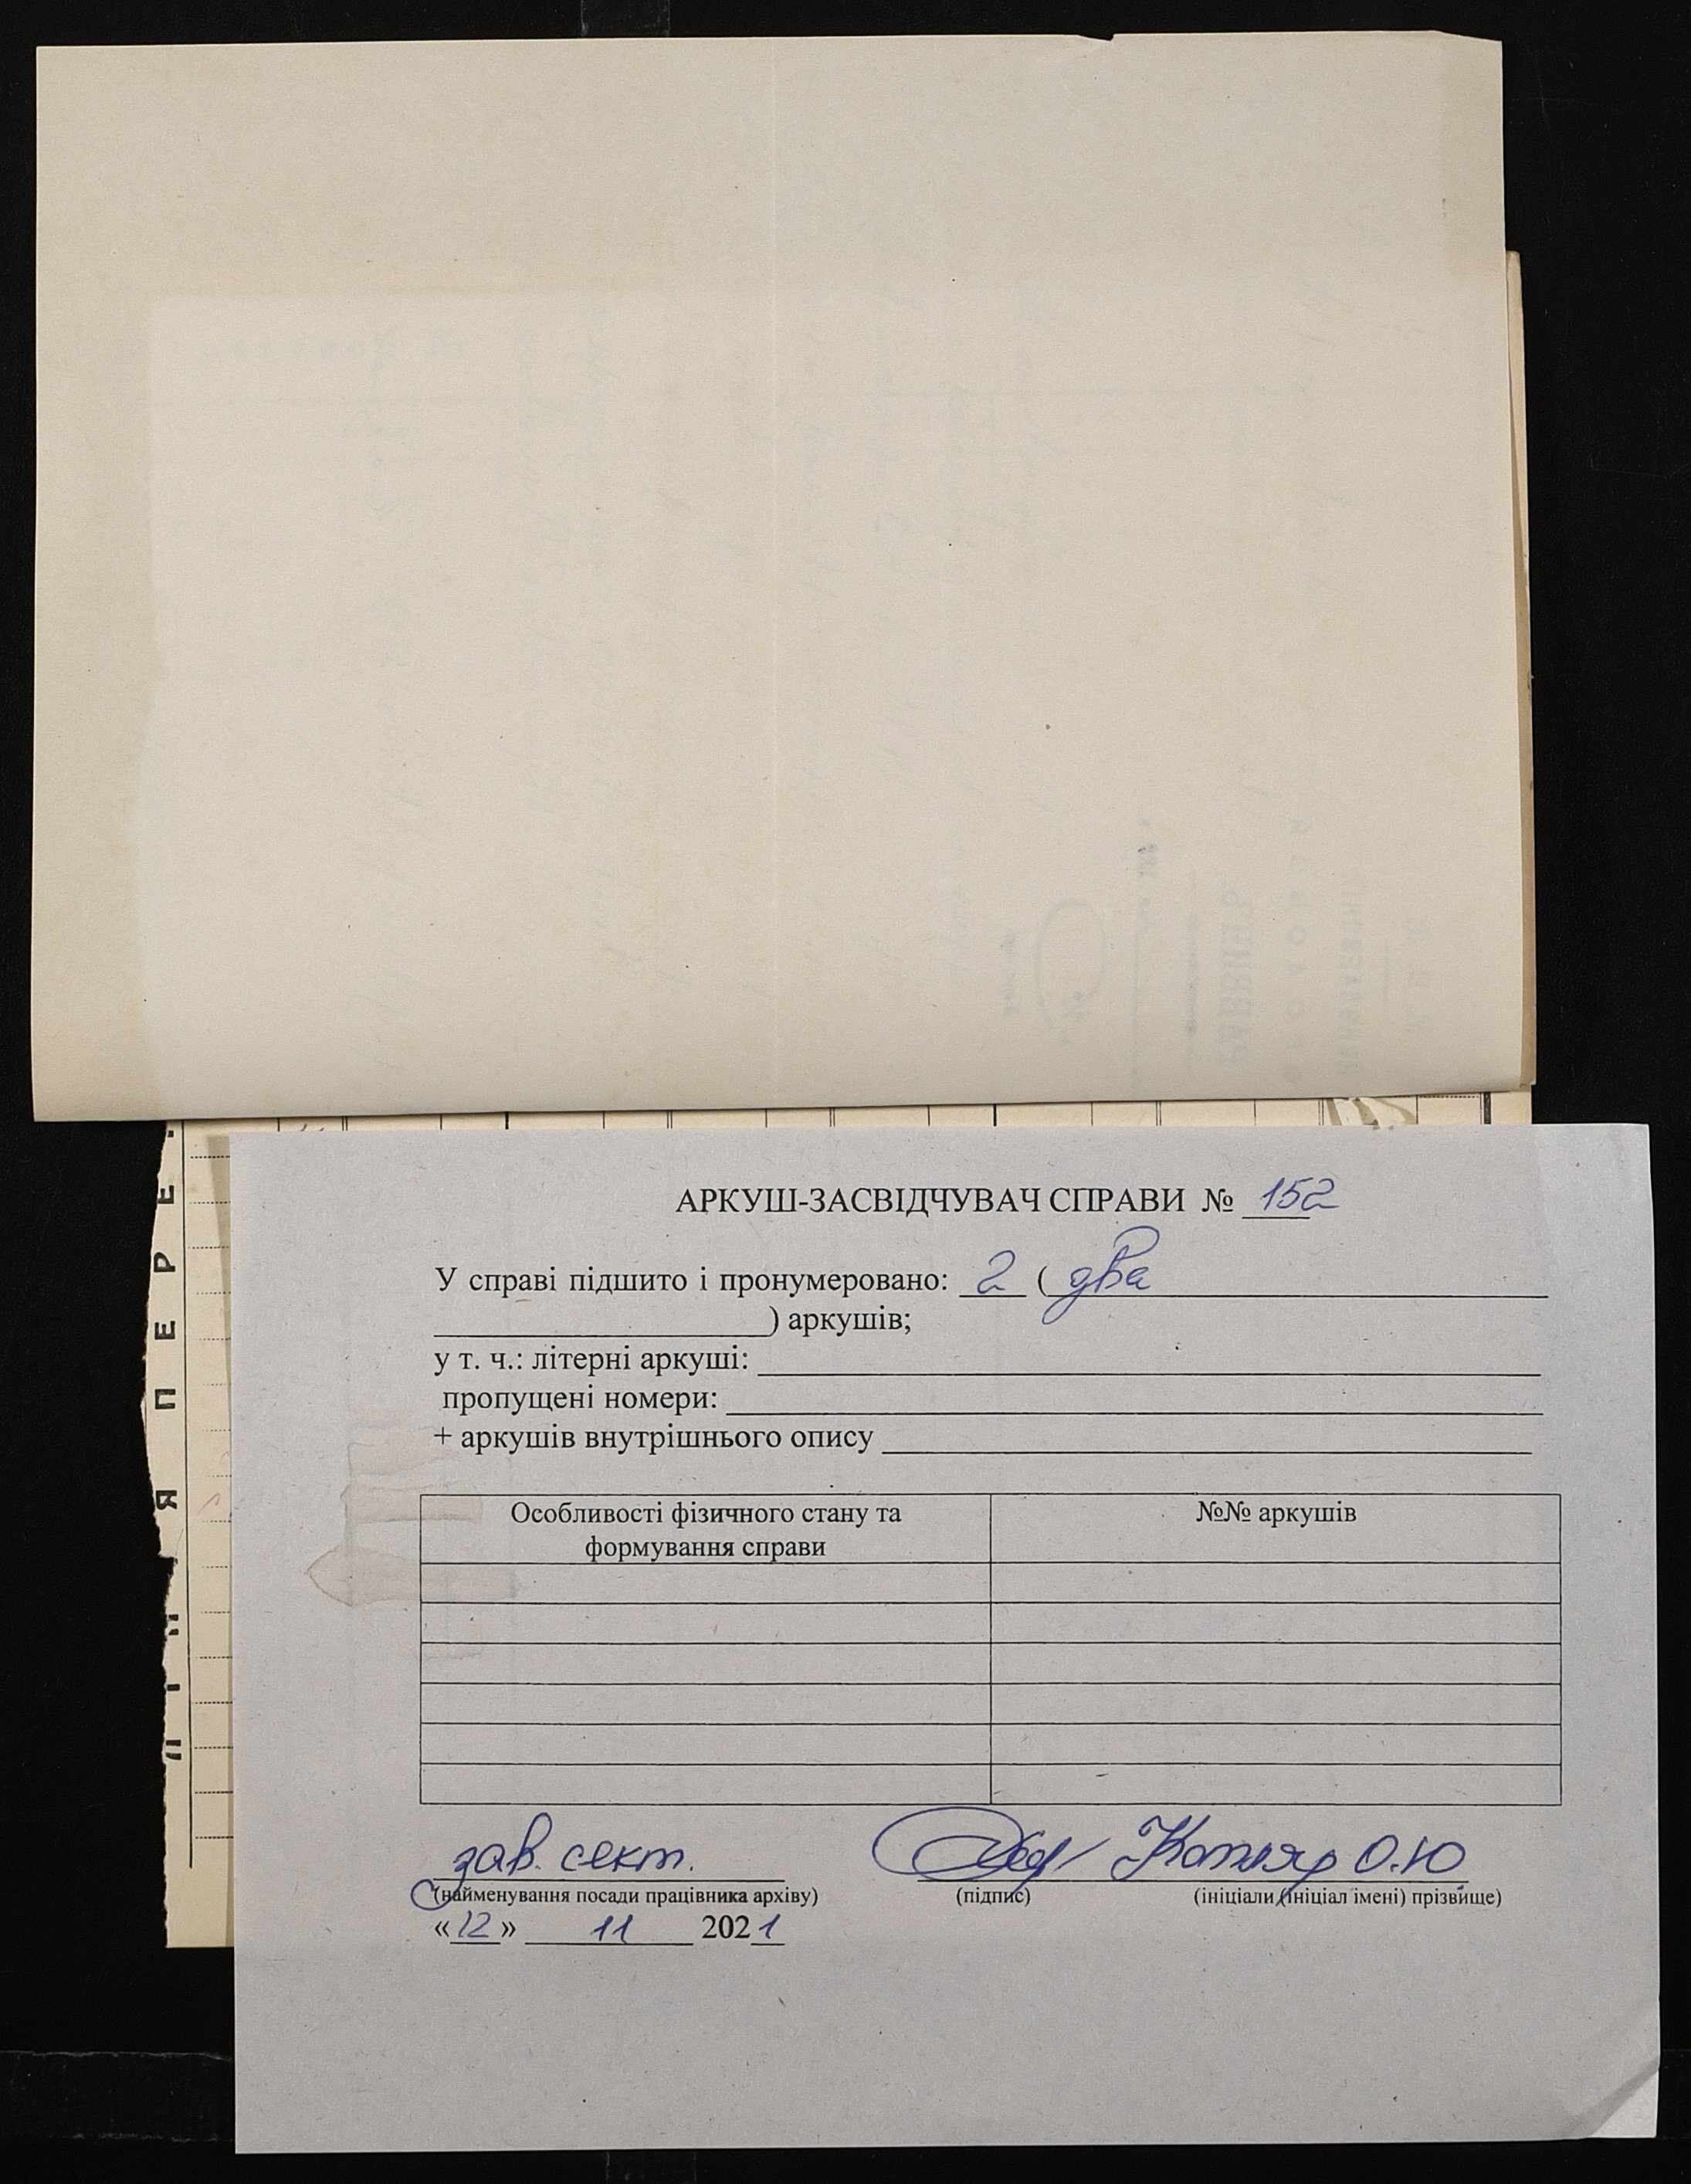 АРКУШ-ЗАСВІДЧУВАЧ СПРАВИ № 152
У справі підшито і пронумеровано: 2 ( два
) аркушів;
у т. ч.: літерні аркуші:
пропущені номери:
+ аркушів внутрішнього опису
Особливості фізичного стану та формування справи
№№ аркушів
зав. сект. Котляр О.Ю.
(найменування посади працівника архіву) (підпис) (ініціали (ініціал імені) прізвище)
«12» 11 2021
П Е Р Е